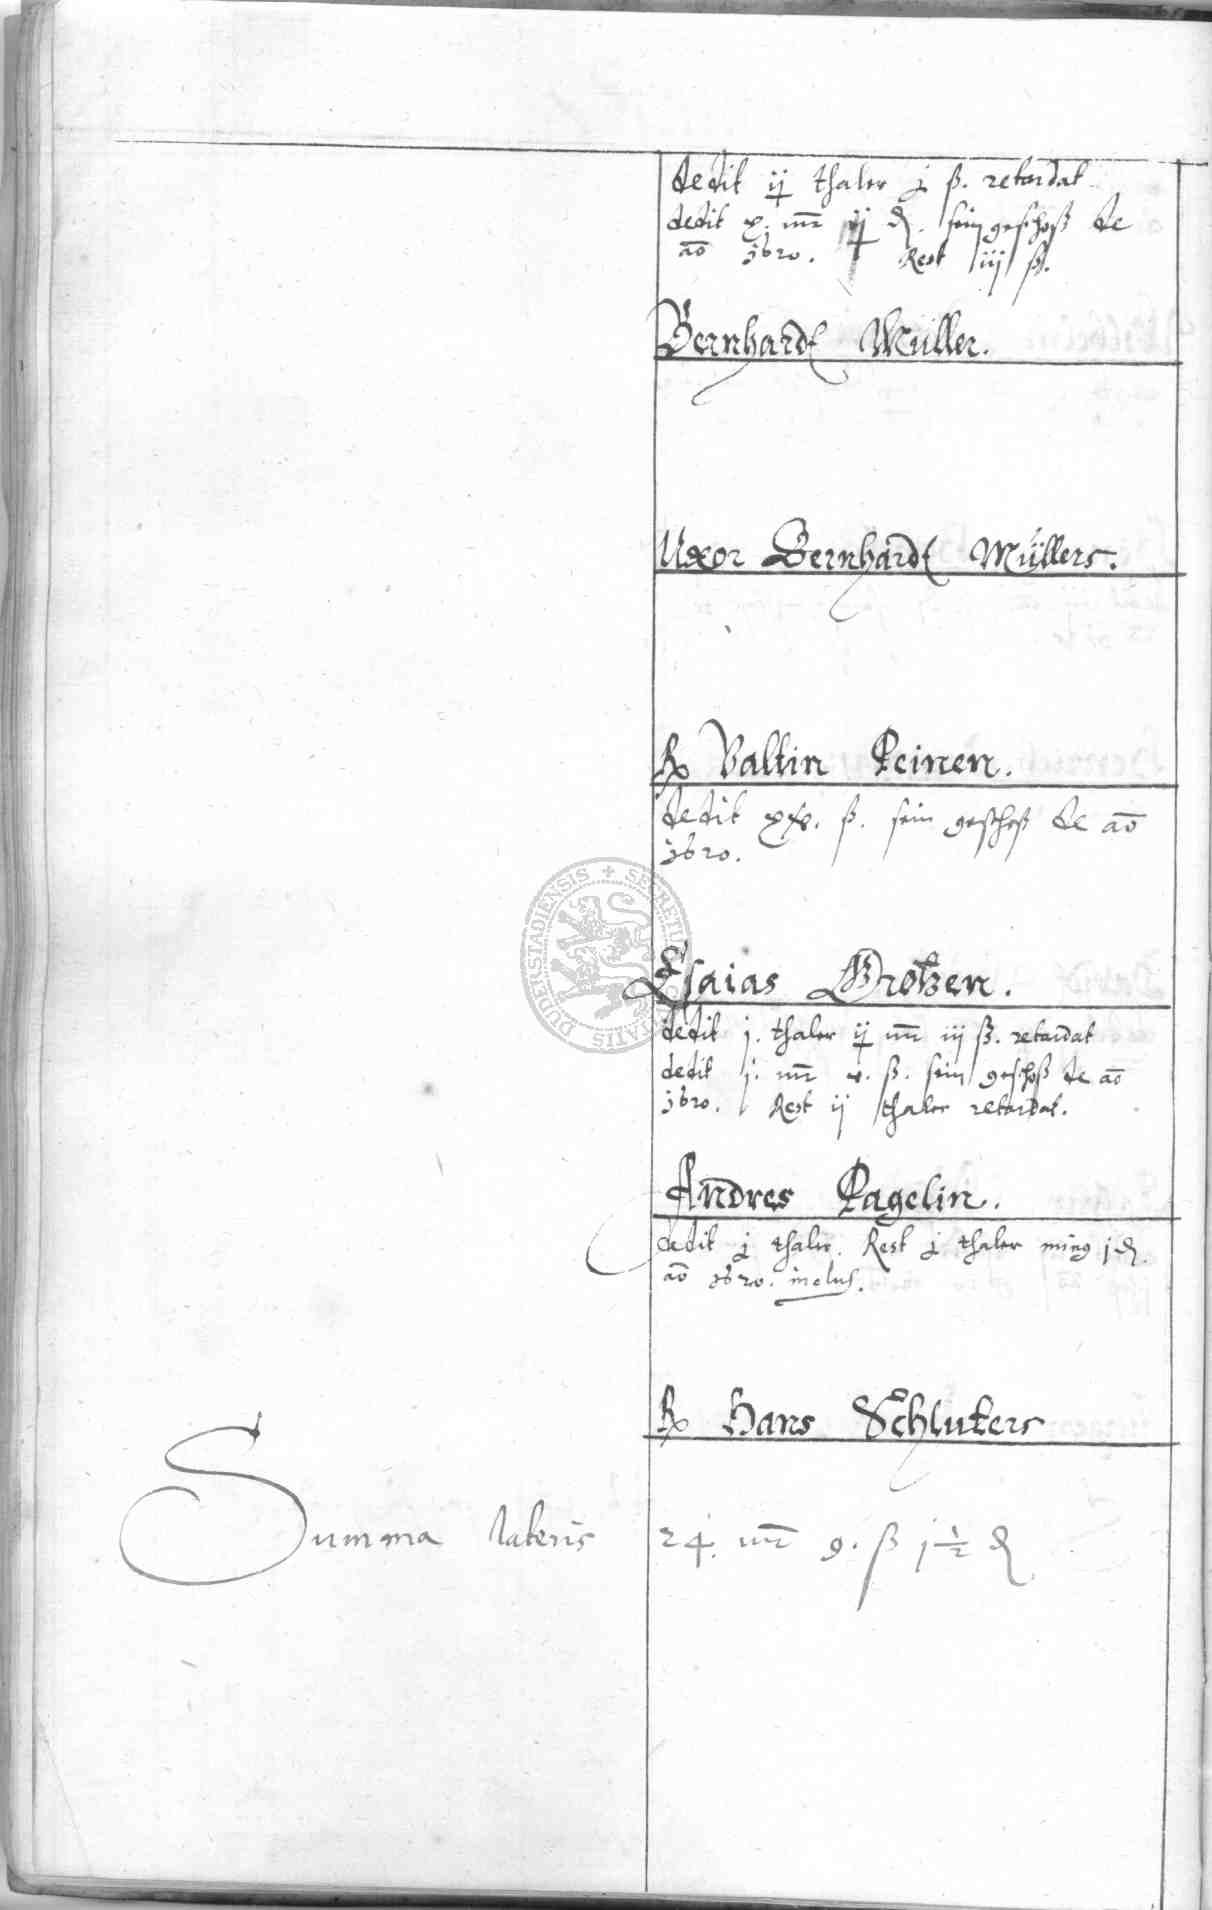 dedit ij thaler j ß. retardat
dedit x. mr ij d. sein geschoß de
ao 1620. Rest iij ß.
Bernhardt Müller.
Uxor Bernhardt Müllers.
Rx Valtin Peinen.
dedit xx. ß. sein geschoß de ao
1620.
Esaias Grotzen.
dedit j. thaler ij mr iij ß. retardat
dedit j. mr v. ß. sein geschoß de ao
1620. Rest ij thaler retardat.
Andres Pagelin.
dedit j thaler. Rest j thaler minus j d.
ao 1620. inclus.
Rx Hans Schluters
Summa lateris 24. mr 9. ß 1 1/2 d
SECRETU DUDERSTADIENSIS